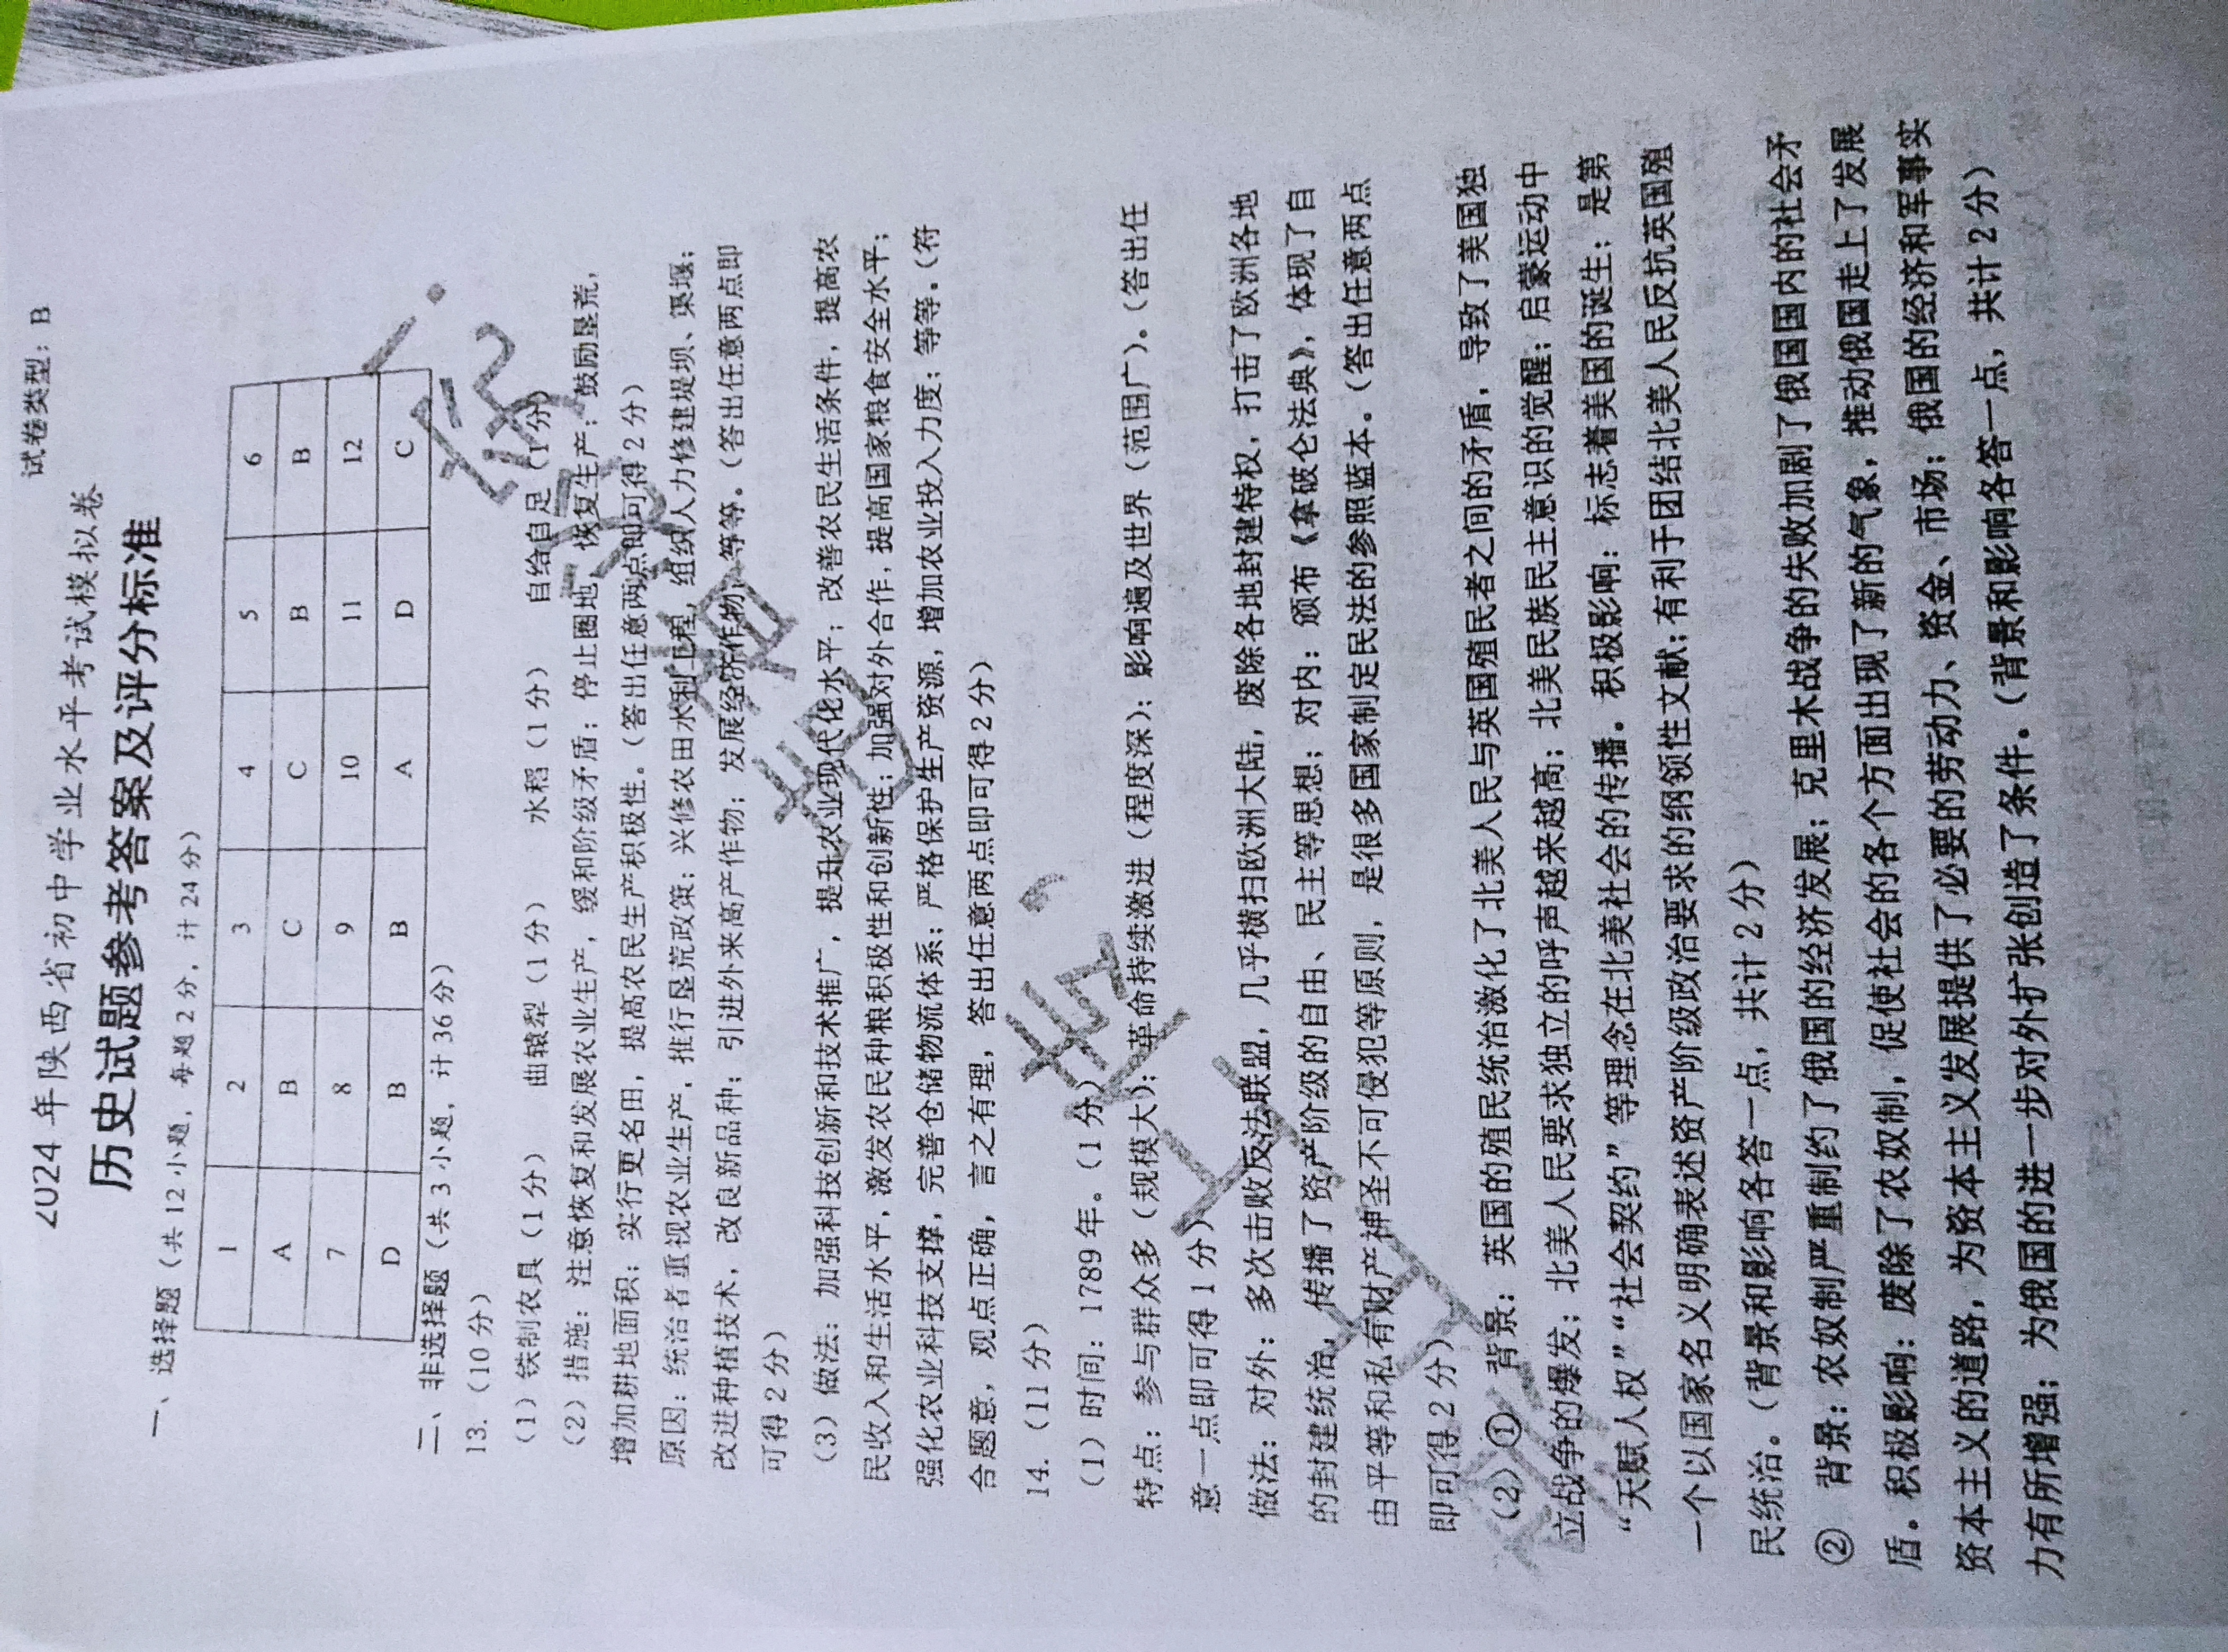 试卷类型：B
2024年陕西省初中学业水平考试模拟卷
历史试题参考答案及评分标准
一、选择题（共12小题，每题2分，计24分）
1 2 3 4 5 6
A B C C B B
7 8 9 10 11 12
D B B A D C
二、非选择题（共3小题，计36分）
13.（10分）
（1）铁制农具（1分） 曲辕犁（1分） 水稻（1分） 自给自足（1分）
（2）措施：注意恢复和发展农业生产，缓和阶级矛盾；停止圈地，恢复生产；鼓励垦荒，
增加耕地面积；实行更名田，提高农民生产积极性。（答出任意两点即可得2分）
原因：统治者重视农业生产，推行垦荒政策；兴修农田水利工程，组织人力修建堤坝、渠堰；
改进种植技术，改良新品种；引进外来高产作物；发展经济作物；等等。（答出任意两点即
可得2分）
（3）做法：加强科技创新和技术推广，提升农业现代化水平；改善农民生活条件，提高农
民收入和生活水平，激发农民种粮积极性和创新性；加强对外合作，提高国家粮食安全水平；
强化农业科技支撑，完善仓储物流体系；严格保护生产资源，增加农业投入力度；等等。（符
合题意，观点正确，言之有理，答出任意两点即可得2分）
14.（11分）
（1）时间：1789年。（1分）
特点：参与群众多（规模大）；革命持续激进（程度深）；影响遍及世界（范围广）。（答出任
意一点即可得1分）
做法：对外：多次击败反法联盟，几乎横扫欧洲大陆，废除各地封建特权，打击了欧洲各地
的封建统治，传播了资产阶级的自由、民主等思想；对内：颁布《拿破仑法典》，体现了自
由平等和私有财产神圣不可侵犯等原则，是很多国家制定民法的参照蓝本。（答出任意两点
即可得2分）
（2）① 背景：英国的殖民统治激化了北美人民与英国殖民者之间的矛盾，导致了美国独
立战争的爆发；北美人民要求独立的呼声越来越高；北美民族民主意识的觉醒；启蒙运动中
“天赋人权”“社会契约”等理念在北美社会的传播。积极影响：标志着美国的诞生；是第
一个以国家名义明确表述资产阶级政治要求的纲领性文献；有利于团结北美人民反抗英国殖
民统治。（背景和影响各答一点，共计2分）
② 背景：农奴制严重制约了俄国的经济发展；克里木战争的失败加剧了俄国国内的社会矛
盾。积极影响：废除了农奴制，促使社会的各个方面出现了新的气象，推动俄国走上了发展
资本主义的道路，为资本主义发展提供了必要的劳动力、资金、市场；俄国的经济和军事实
力有所增强；为俄国的进一步对外扩张创造了条件。（背景和影响各答一点，共计2分）